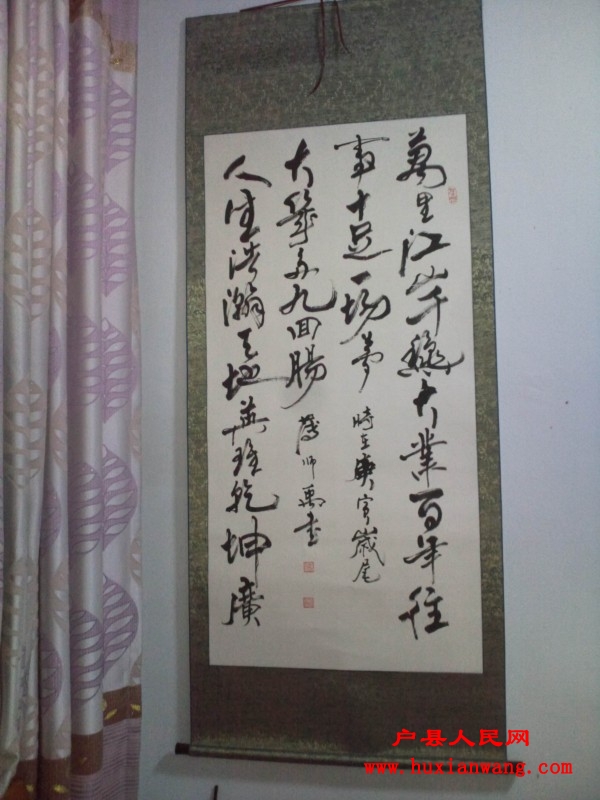 萬里江山千秋大業百年往
事十足一場夢
時在庚寅歲尾
人生浩瀚天地英雄乾坤廣
大幾多九回腸
師禹書
户县人民网
www.huxianwang.com